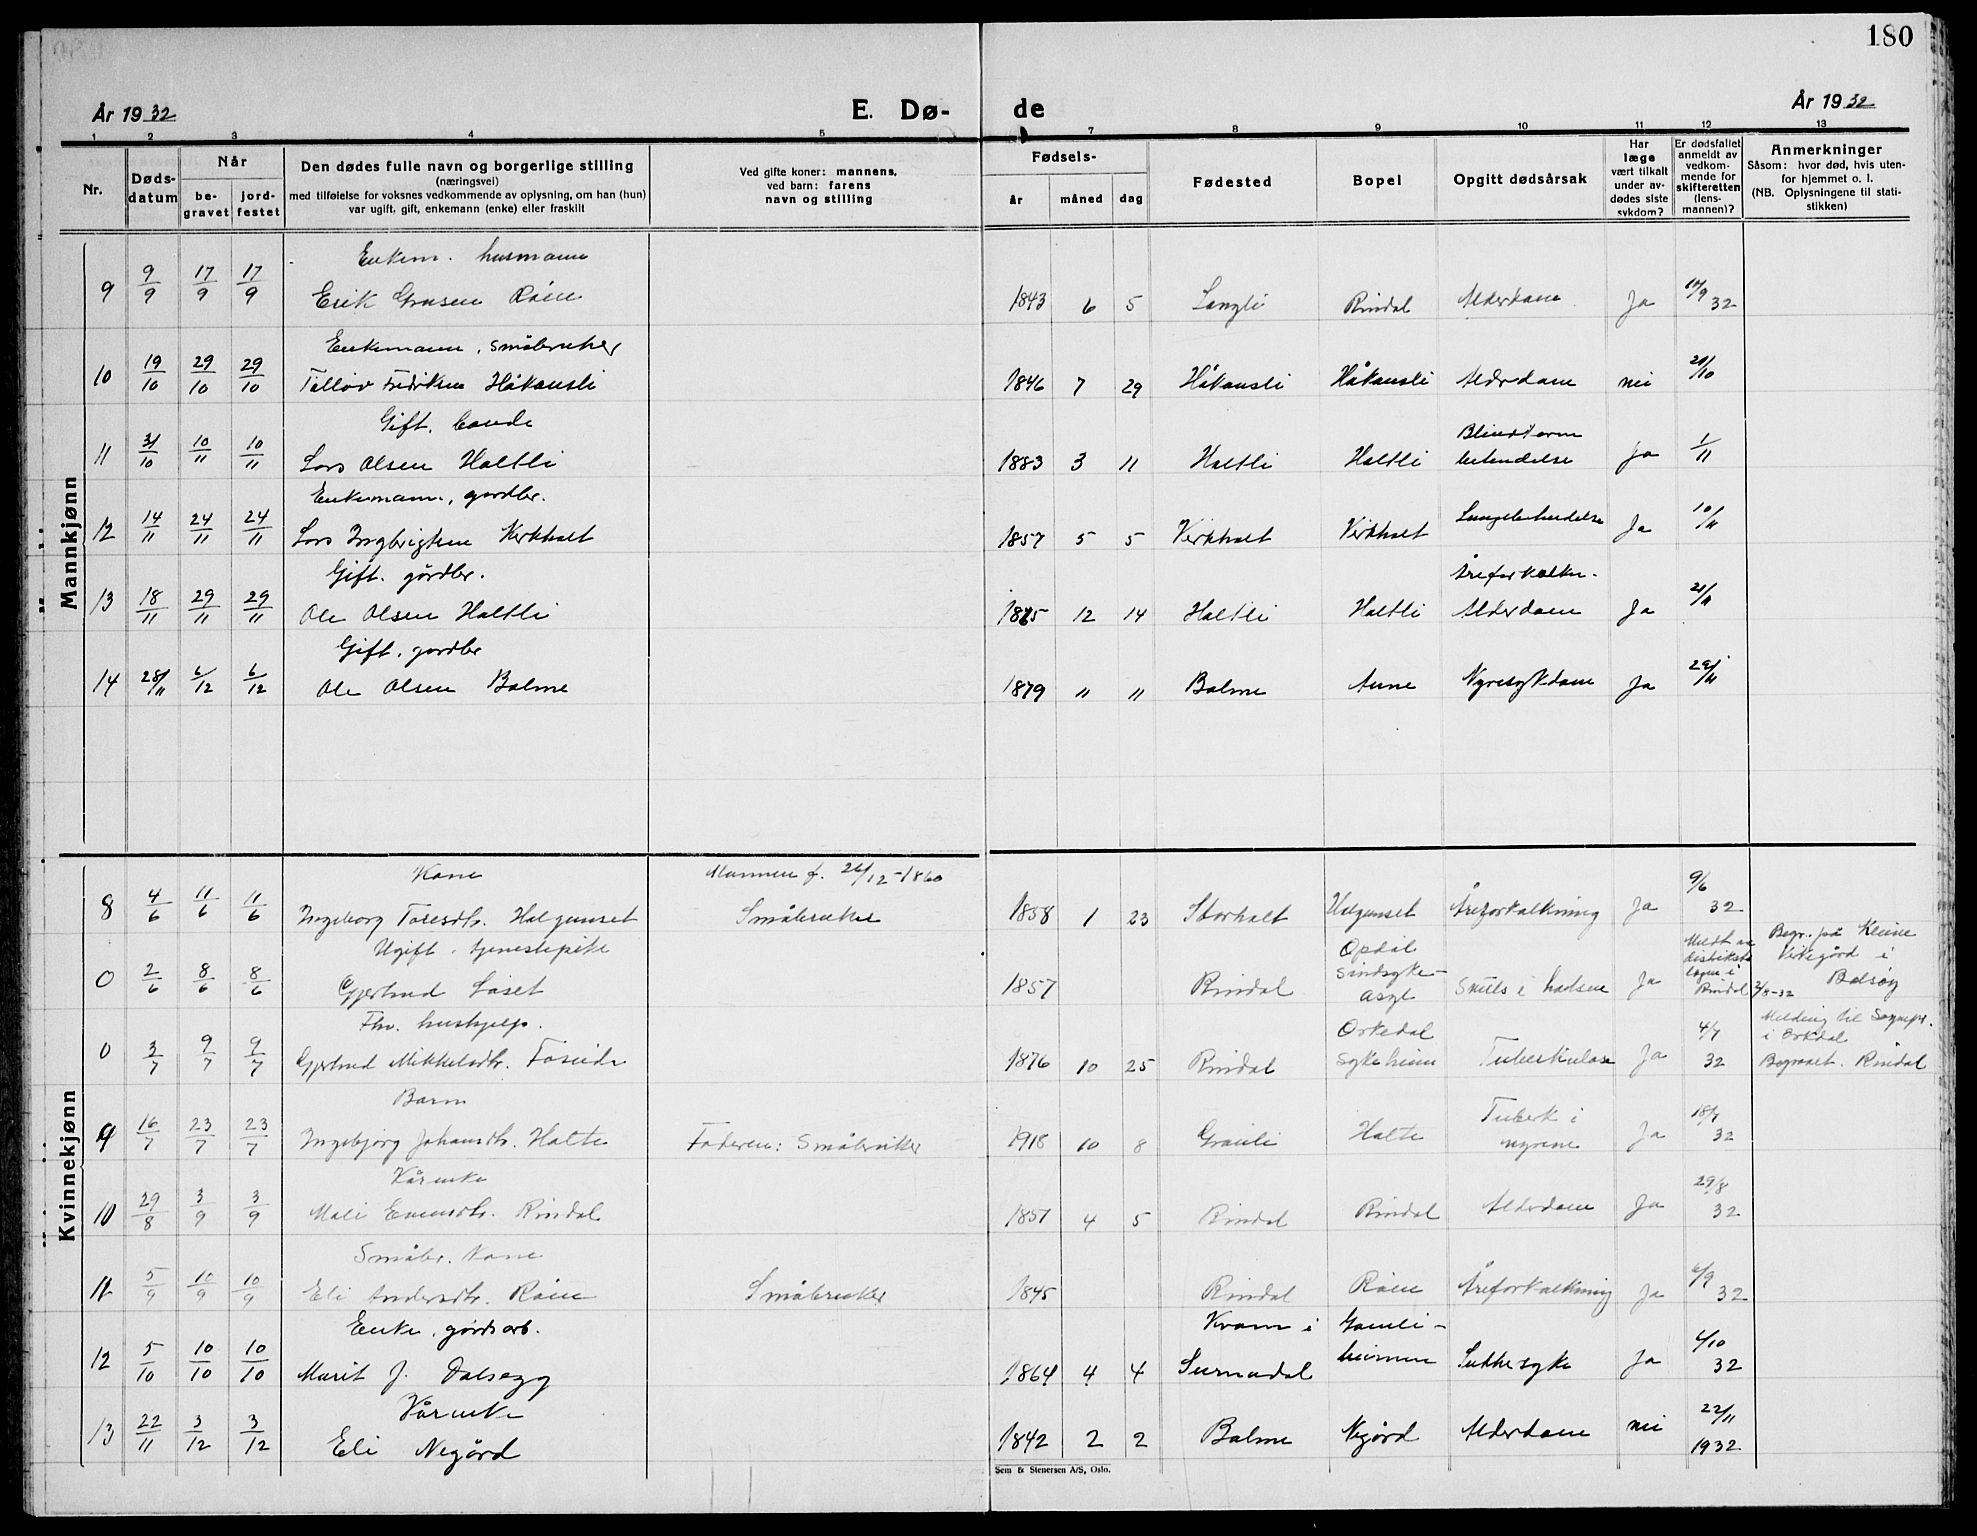 180
År 1932
E. Dø-
de
År 1932
1 2 3 4 5 7 8 9 10 11 12 13
Nr.
Døds-
datum
Når
be-
gravet
jord-
festet
Den dødes fulle navn og borgerlige stilling
(næringsvei)
med tilføielse for voksnes vedkommende av oplysning, om han (hun)
var ugift, gift, enkemann (enke) eller fraskilt
Ved gifte koner: mannens,
ved barn: farens
navn og stilling
Fødsels-
år
måned
dag
Fødested
Bopel
Opgitt dødsårsak
Har
læge
vært tilkalt
under av-
dødes siste
sykdom?
Er dødsfallet
anmeldt av
vedkom-
mende for
skifteretten
(lens-
mannen)?
Anmerkninger
Såsom: hvor død, hvis uten-
for hjemmet o. l.
(NB. Oplysningene til stati-
stikken)
Mannkjønn
Enkem. husmann
9 9/9 17/9 17/9 Erik Røen 1843 6 5 Langli Rindal Alderdom Ja 32
Enkemann, småbruker
10 19/10 29/10 29/10 Håkansli 1846 7 29 Håkansli Håkansli Alderdom nei 20/10
Gift. bonde
11 31/10 10/11 10/11 Lars Olsen Holtli 1883 3 11 Holtli Holtli Blindtarm
betendelse Ja 1/11
Enkemann, gårdbr.
12 14/11 24/11 24/11 Lars Ingbrigtsen 1857 5 5 Lungebetendelse Ja 10/11
Gift. gårdbr.
13 18/11 29/11 29/11 Ole Olsen Holtli 12 14 Holtli Holtli Åreforkalkn.
Alderdom Ja 21/11
Gift. gårdbr
14 28/11 6/12 6/12 Ole Olsen Bolme 1879 " " Bolme Aune Nyresykdom Ja 29/11
Kvinnekjønn
Kone Mannen f. 26/12-1860
8 4/6 11/6 11/6 Ingeborg Toresdtr. Halgunset Småbruker 1858 1 23 Storholt Halgunset Åreforkalkning Ja 9/6
32
Ugift. tjenestepike
0 2/6 8/6 8/6 Gjertrud Løset 1857 Rindal Opdøl
Sindsyke-
asyl i Ja Meldt av
distrikts
lægen i
Rindal 2/8-32 Begr. på Kleive
kirkegård i
Bolsøy
Fhv. hushjelp.
0 3/7 9/7 9/7 Gjertrud Mikkelsdtr. Foseide 1876 10 25 Rindal Orkedal
Sykeheim Tuberkulose Ja 4/7
32 Melding til Sognepr.
i Orkdal
Begravet. Rindal
Barn
9 16/7 23/7 23/7 Ingebjørg Johansdtr. Holte Faderen: Småbruker 1918 10 8 Grønli Holte Tuberk i
nyrene Ja 18/7
32
Kårenke
10 29/8 3/9 3/9 Mali Evensdtr. Rindal 1857 4 5 Rindal Rindal Alderdom Ja 29/8
32
Småbr. Kone
11 5/9 10/9 10/9 Eli Andersdtr. Røen Småbruker 1845 Rindal Røen Åreforkalkning Ja 6/9
32
Enke, gårdsarb.
12 5/10 10/10 10/10 Marit J. Dalsegg 1864 4 4 Kvam i
Surnadal Gamle-
heimen Sukkersyke Ja 6/10
32
Kårenke
13 22/11 3/12 3/12 Eli Negård 1842 2 2 Bolme Negård Alderdom nei 22/11
1932
Sem & Stenersen A/S, Oslo.